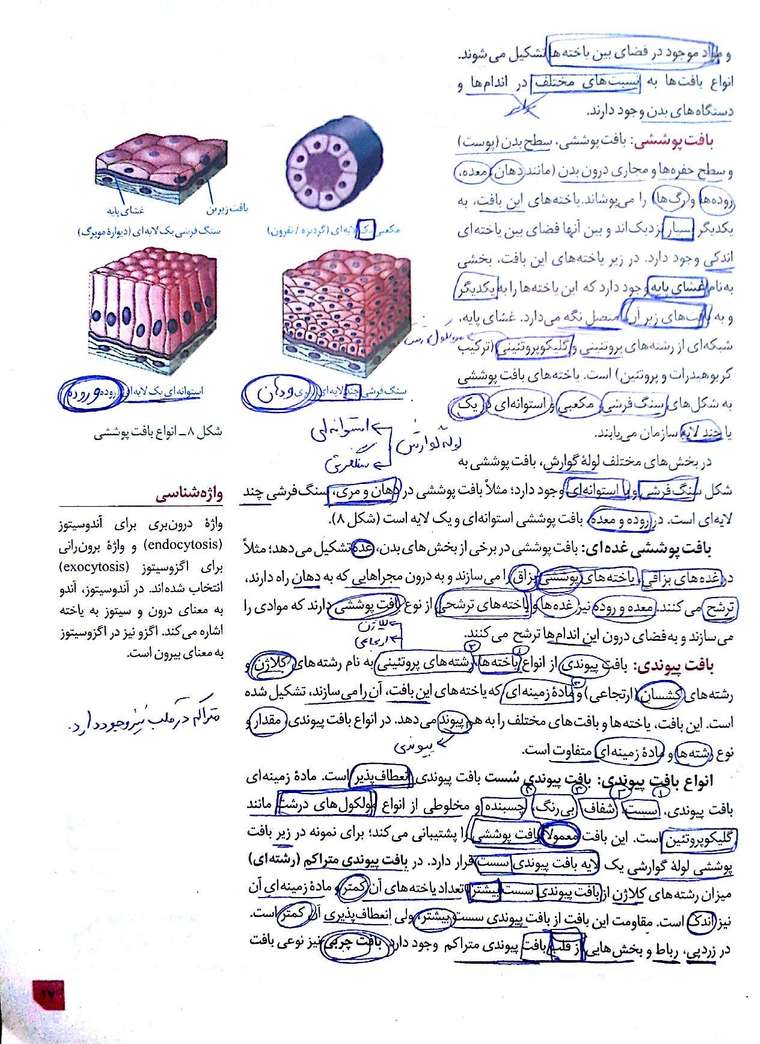 و مواد موجود در فضای بین یاخته‌ها تشکیل می‌شوند.
انواع بافت‌ها به نسبت‌های مختلف در اندام‌ها و
دستگاه‌های بدن وجود دارند.
بافت پوششی: بافت پوششی، سطح بدن (پوست)
و سطح حفره‌ها و مجاری درون بدن (مانند دهان، معده،
روده‌ها و رگ‌ها) را می‌پوشاند. یاخته‌های این بافت، به
یکدیگر بسیار نزدیک‌اند و بین آنها فضای بین یاخته‌ای
اندکی وجود دارد. در زیر یاخته‌های این بافت، بخشی
به‌نام غشای پایه وجود دارد که این یاخته‌ها را به یکدیگر
و به بافت‌های زیر آن متصل نگه می‌دارد. غشای پایه،
شبکه‌ای از رشته‌های پروتئینی و گلیکوپروتئینی (ترکیب
کربوهیدرات و پروتئین) است. یاخته‌های بافت پوششی
به شکل‌های سنگ‌فرشی، مکعبی و استوانه‌ای در یک
یا چند لایه سازمان می‌یابند.
در بخش‌های مختلف لولهٔ گوارش، بافت پوششی به
شکل سنگ‌فرشی و یا استوانه‌ای وجود دارد؛ مثلاً بافت پوششی در دهان و مری، سنگ‌فرشی چند
لایه‌ای است. در روده و معده، بافت پوششی استوانه‌ای و یک لایه است (شکل ۸).
بافت پوششی غده‌ای: بافت پوششی در برخی از بخش‌های بدن، غده تشکیل می‌دهد؛ مثلاً
در غده‌های بزاقی، یاخته‌های پوششی بزاق را می‌سازند و به درون مجراهایی که به دهان راه دارند،
ترشح می‌کنند. معده و روده نیز غده‌ها و یاخته‌های ترشحی از نوع بافت پوششی دارند که موادی را
می‌سازند و به‌فضای درون این اندام‌ها ترشح می‌کنند.
کلاژن
ارتجاعی
بافت پیوندی: بافت پیوندی از انواع یاخته‌ها، رشته‌های پروتئینی به نام رشته‌های کلاژن و
رشته‌های کشسان (ارتجاعی) و مادهٔ زمینه‌ای که یاخته‌های این بافت، آن را می‌سازند، تشکیل شده
است. این بافت، یاخته‌ها و بافت‌های مختلف را به هم پیوند می‌دهد. در انواع بافت پیوندی مقدار و
نوع رشته‌ها و مادهٔ زمینه‌ای متفاوت است.
پیوندی
انواع بافت پیوندی: بافت پیوندی سُست بافت پیوندی انعطاف‌پذیر است. مادهٔ زمینه‌ای
بافت پیوندی، سست، شفاف، بی‌رنگ، چسبنده و مخلوطی از انواع مولکول‌های درشت مانند
گلیکوپروتئین است. این بافت معمولاً بافت پوششی را پشتیبانی می‌کند؛ برای نمونه در زیر بافت
پوششی لولهٔ گوارشی یک لایه بافت پیوندی سست قرار دارد. در بافت پیوندی متراکم (رشته‌ای)
میزان رشته‌های کلاژن از بافت پیوندی سست بیشتر، تعداد یاخته‌های آن کمتر و مادهٔ زمینه‌ای آن
نیز اندک است. مقاومت این بافت از بافت پیوندی سست بیشتر، ولی انعطاف‌پذیری آن کمتر است.
در زردپی، رباط و بخش‌هایی از قلب بافت پیوندی متراکم وجود دارد. بافت چربی نیز نوعی بافت
بافت زیرین
غشای پایه
سنگ فرشی یک لایه‌ای (دیوارهٔ مویرگ)
مکعبی یک لایه‌ای (گردیزه / نفرون)
استوانه‌ای یک لایه‌ای (روده)
و روده
سنگ فرشی چند لایه‌ای (مری)
ودهان
شکل ۸ـ انواع بافت پوششی
لوله گوارش
استوانه ای
سنگفرشی
واژه‌شناسی
واژهٔ درون‌بری برای آندوسیتوز
(endocytosis) و واژهٔ برون‌رانی
برای اگزوسیتوز (exocytosis)
انتخاب شده‌اند. در آندوسیتوز، آندو
به معنای درون و سیتوز به یاخته
اشاره می‌کند. اگزو نیز در اگزوسیتوز
به معنای بیرون است.
متراکم در قلب نیز وجود دارد.